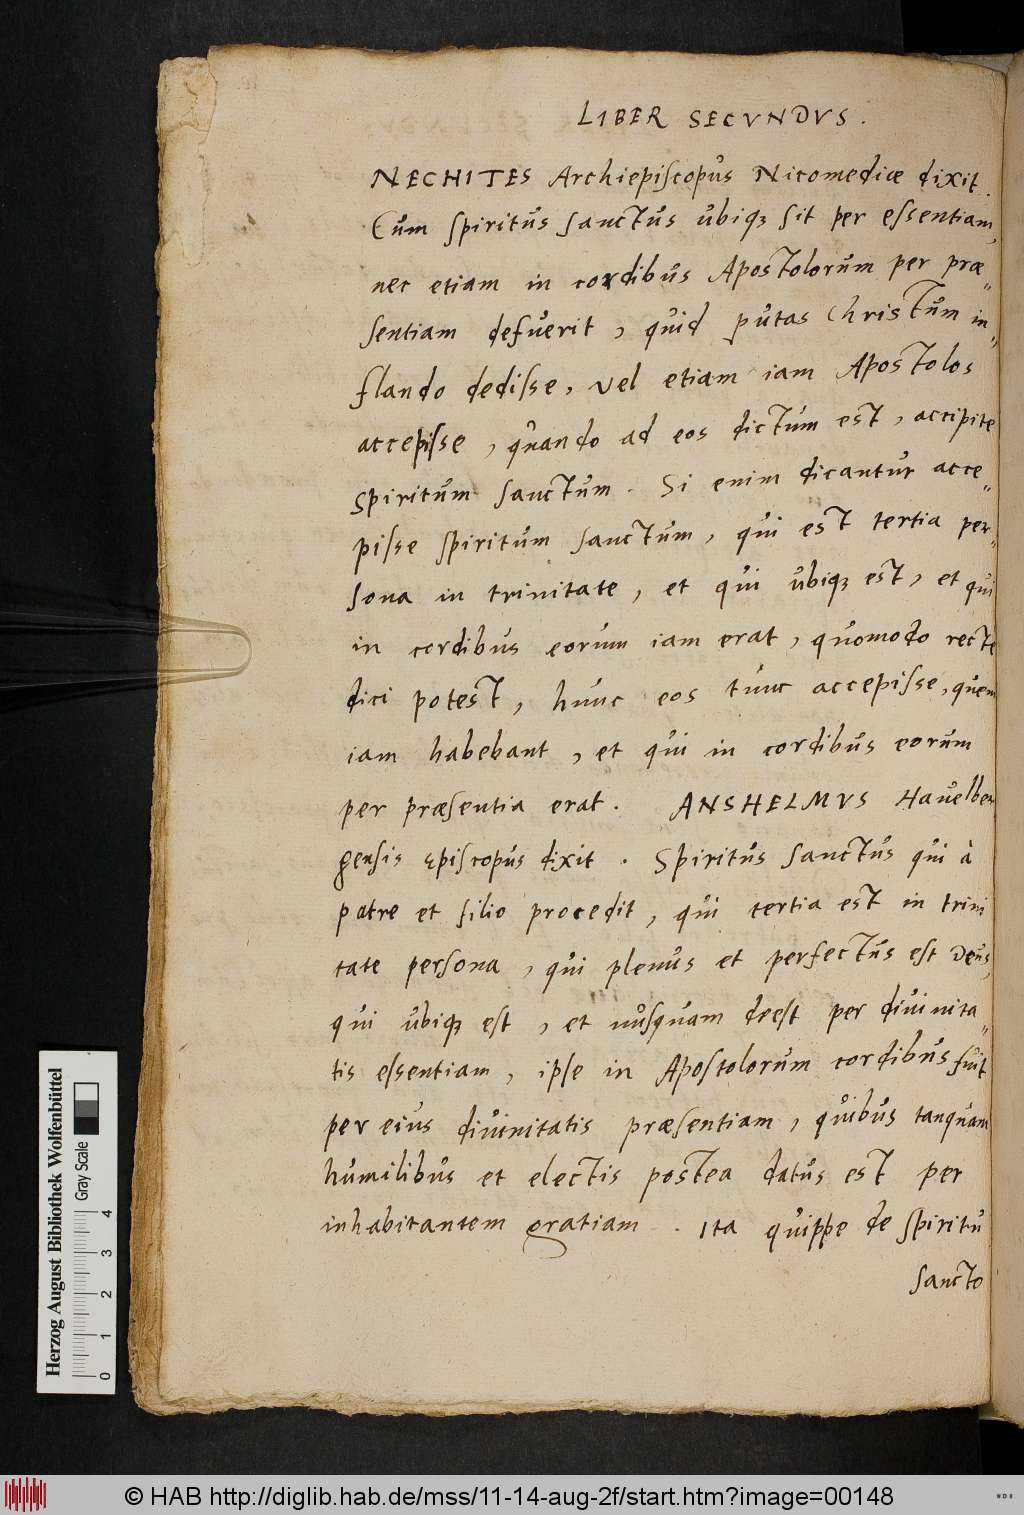 LIBER SECVNDVS.
NECHITES Archiepiscopus Nicomediæ dixit.
Cum spiritus sanctus ubiqꝫ sit per essentiam,
nec etiam in cordibus Apostolorum per præ⸗
sentiam defuerit, quid putas Christum in⸗
flando dedisse, vel etiam iam Apostolos
accepisse, quando ad eos dictum est, accipite
Spiritum sanctum. Si enim dicantur acce⸗
pisse spiritum sanctum, qui est tertia per⸗
sona in trinitate, et qui ubiqꝫ est, et qui
in cordibus eorum iam erat, quomodo recte
dici potest, hunc eos tunc accepisse, quem
iam habebant, et qui in cordibus eorum
per præsentia erat. ANSHELMVS Havelber
gensis Episcopus dixit. Spiritus sanctus qui à
patre et filio procedit, qui tertia est in trini
tate persona, qui plenus et perfectus est Deus,
qui ubiqꝫ est, et nusquam deest per divinita⸗
tis essentiam, ipse in Apostolorum cordibus fuit
per eius divinitatis præsentiam, quibus tanquam
humilibus et electis postea datus est per
inhabitantem gratiam. Ita quippe de spiritu
sancto
Herzog August Bibliothek Wolfenbüttel
Gray Scale
0 1 2 3 4
© HAB http://diglib.hab.de/mss/11-14-aug-2f/start.htm?image=00148